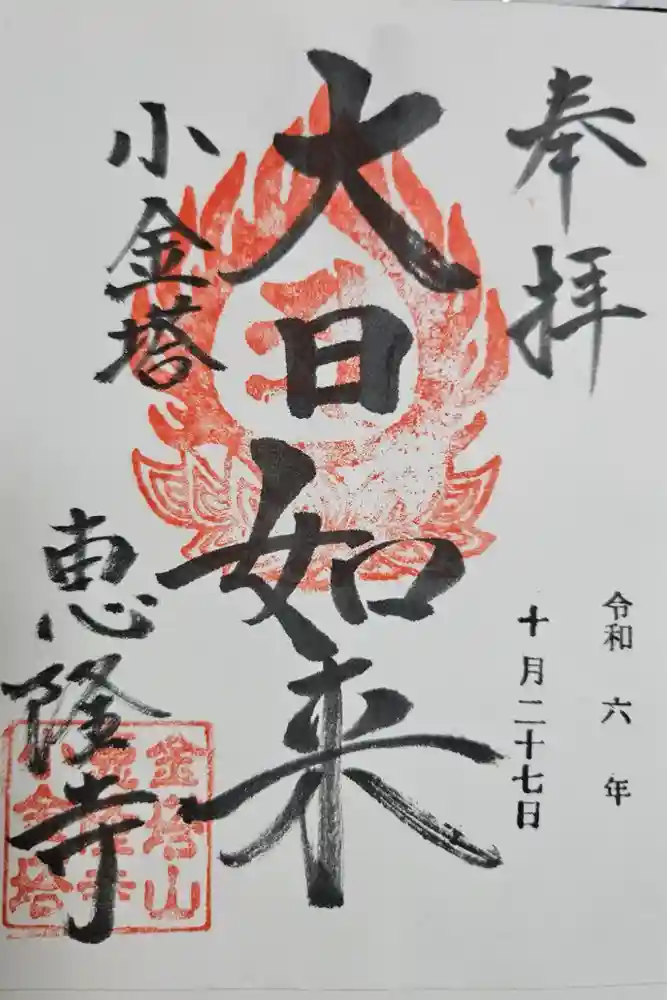 奉拝
令和六年
十月二十七日
大日如来
小金塔
恵隆寺
金塔山
恵隆寺
小金塔